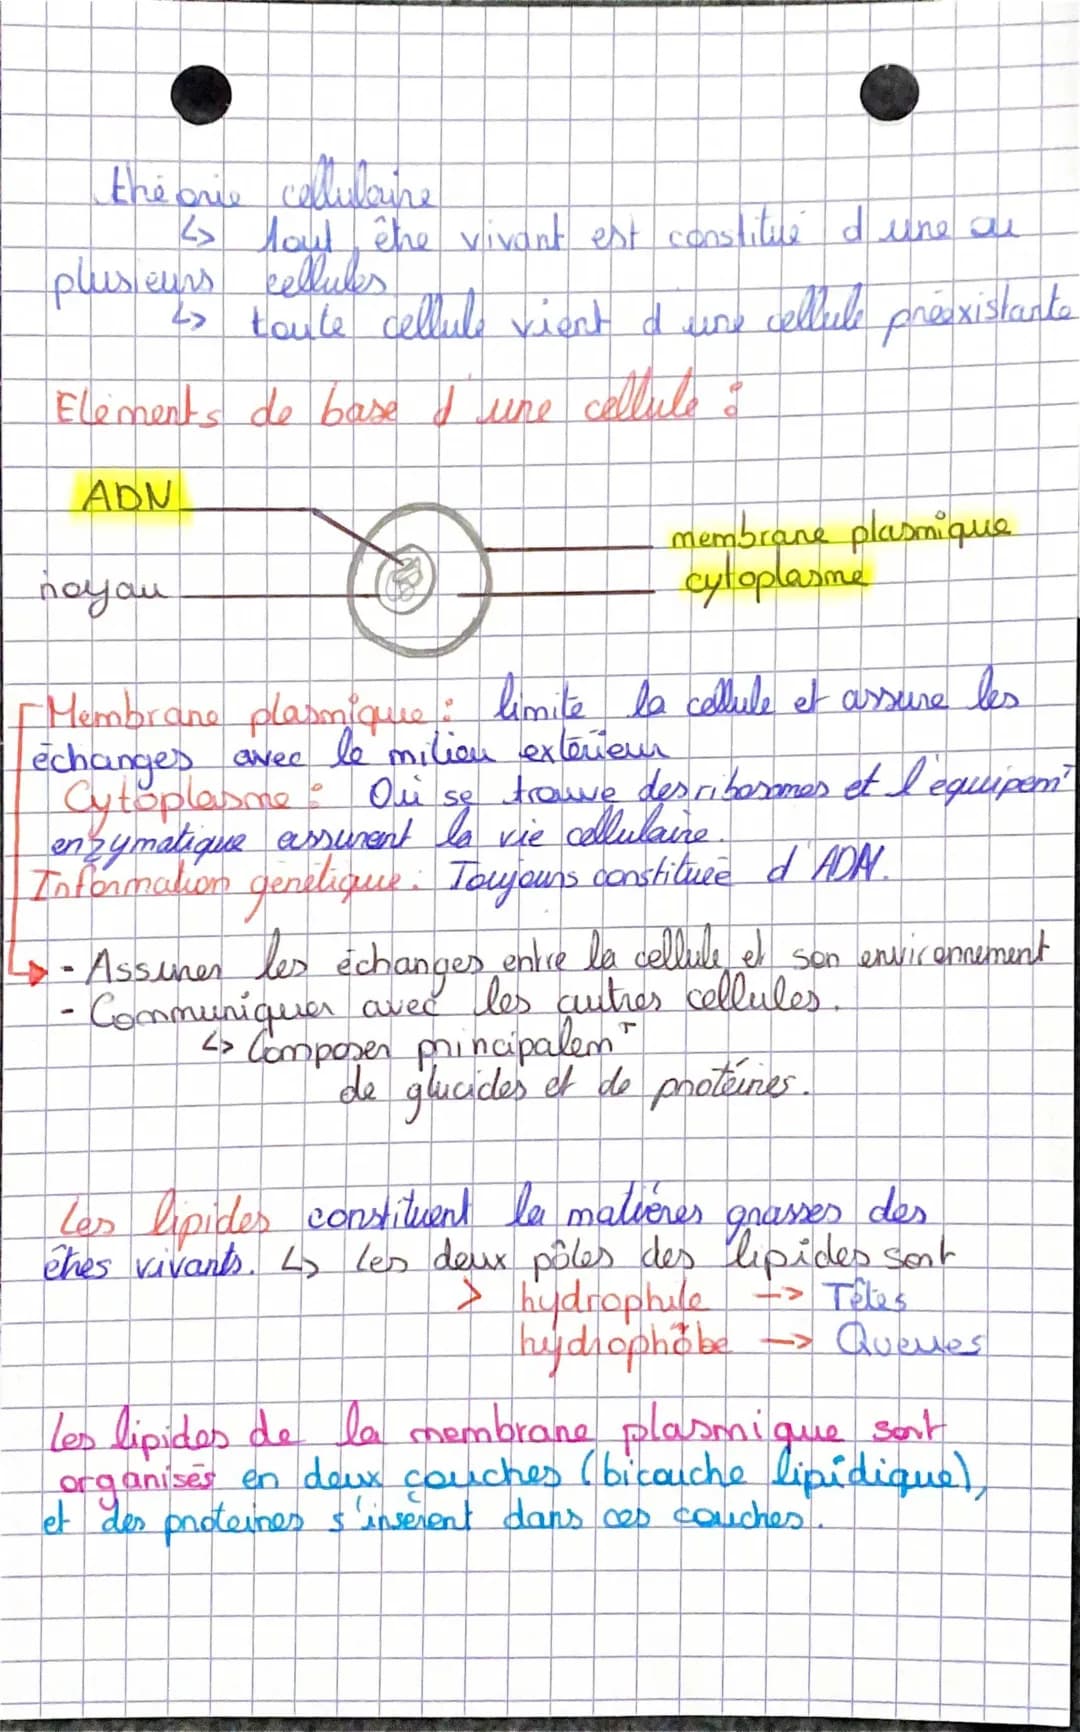 théorie cellulaire
↳ Tout être vivant est constitué d'une ou
plusieurs cellules
↳ toute cellule vient d'une cellule préexistante
Eléments de base d'une cellule :
ADN
membrane plasmique
cytoplasme
noyau
Membrane plasmique : limite la cellule et assure les
échanges avec le milieu extérieur
Cytoplasme : Où se trouve des ribosomes et l'équipemT
enzymatique assurant la vie cellulaire.
Information génétique : Toujours constituée d'ADN.
- Assurer les échanges entre la cellule et son environnement
- Communiquer avec les autres cellules.
↳ Composer principalemT
de glucides et de protéines.
Les lipides constituent la matières grasses des
êtres vivants. ↳ Les deux pôles des lipides sont
> hydrophile --> Têtes
hydrophobe --> Queues
Les lipides de la membrane plasmique sont
organisés en deux couches (bicouche lipidique),
et des proteines s'insèrent dans ces couches.